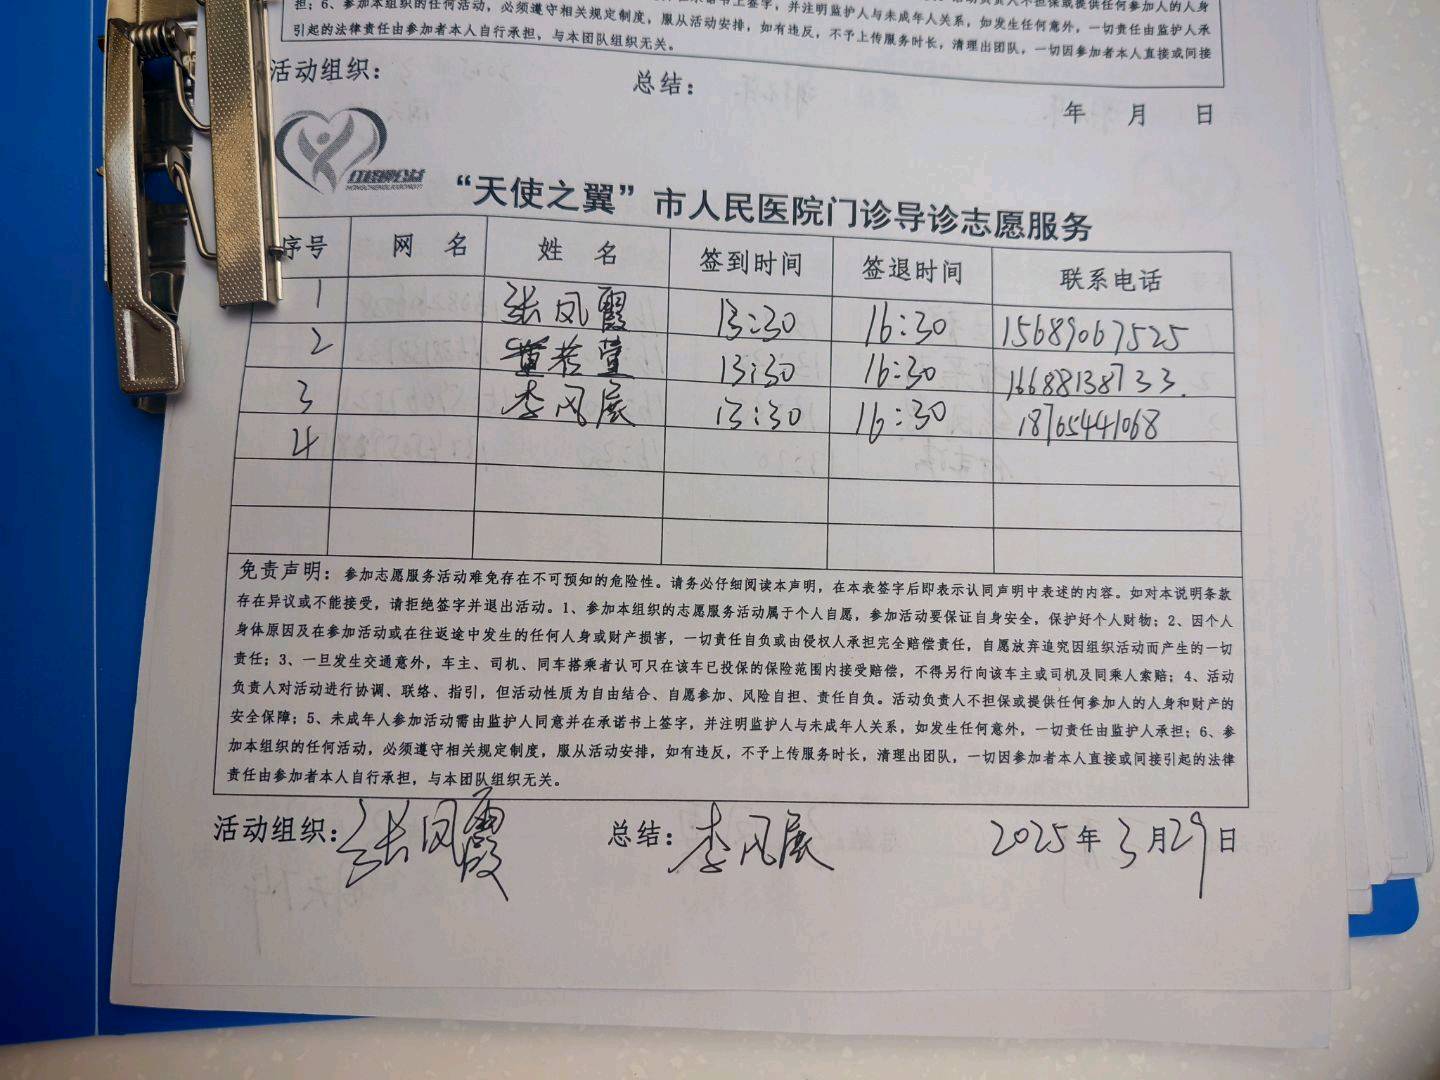 担；6、参加本组织的任何活动，必须遵守相关规定制度，服从活动安排，如有违反，不予上传服务时长，清理出团队，一切因参加者本人直接或间接
引起的法律责任由参加者本人自行承担，与本团队组织无关。
活动组织： 总结：
年 月 日
“天使之翼”市人民医院门诊导诊志愿服务
序号 网 名 姓 名 签到时间 签退时间 联系电话
1 张凤霞 13:30 16:30 15689067525
2 董若萱 13:30 16:30 16688138733.
3 李风展 13:30 16:30 18765441068
4
免责声明：参加志愿服务活动难免存在不可预知的危险性。请务必仔细阅读本声明，在本表签字后即表示认同声明中表述的内容。如对本说明条款
存在异议或不能接受，请拒绝签字并退出活动。1、参加本组织的志愿服务活动属于个人自愿，参加活动要保证自身安全，保护好个人财物；2、因个人
身体原因及在参加活动或在往返途中发生的任何人身或财产损害，一切责任自负或由侵权人承担完全赔偿责任，自愿放弃追究因组织活动而产生的一切
责任；3、一旦发生交通意外，车主、司机、同车搭乘者认可只在该车已投保的保险范围内接受赔偿，不得另行向该车主或司机及同乘人索赔；4、活动
负责人对活动进行协调、联络、指引，但活动性质为自由结合、自愿参加、风险自担、责任自负。活动负责人不担保或提供任何参加人的人身和财产的
安全保障；5、未成年人参加活动需由监护人同意并在承诺书上签字，并注明监护人与未成年人关系，如发生任何意外，一切责任由监护人承担；6、参
加本组织的任何活动，必须遵守相关规定制度，服从活动安排，如有违反，不予上传服务时长，清理出团队，一切因参加者本人直接或间接引起的法律
责任由参加者本人自行承担，与本团队组织无关。
活动组织：张凤霞 总结：李风展 2025年3月29日